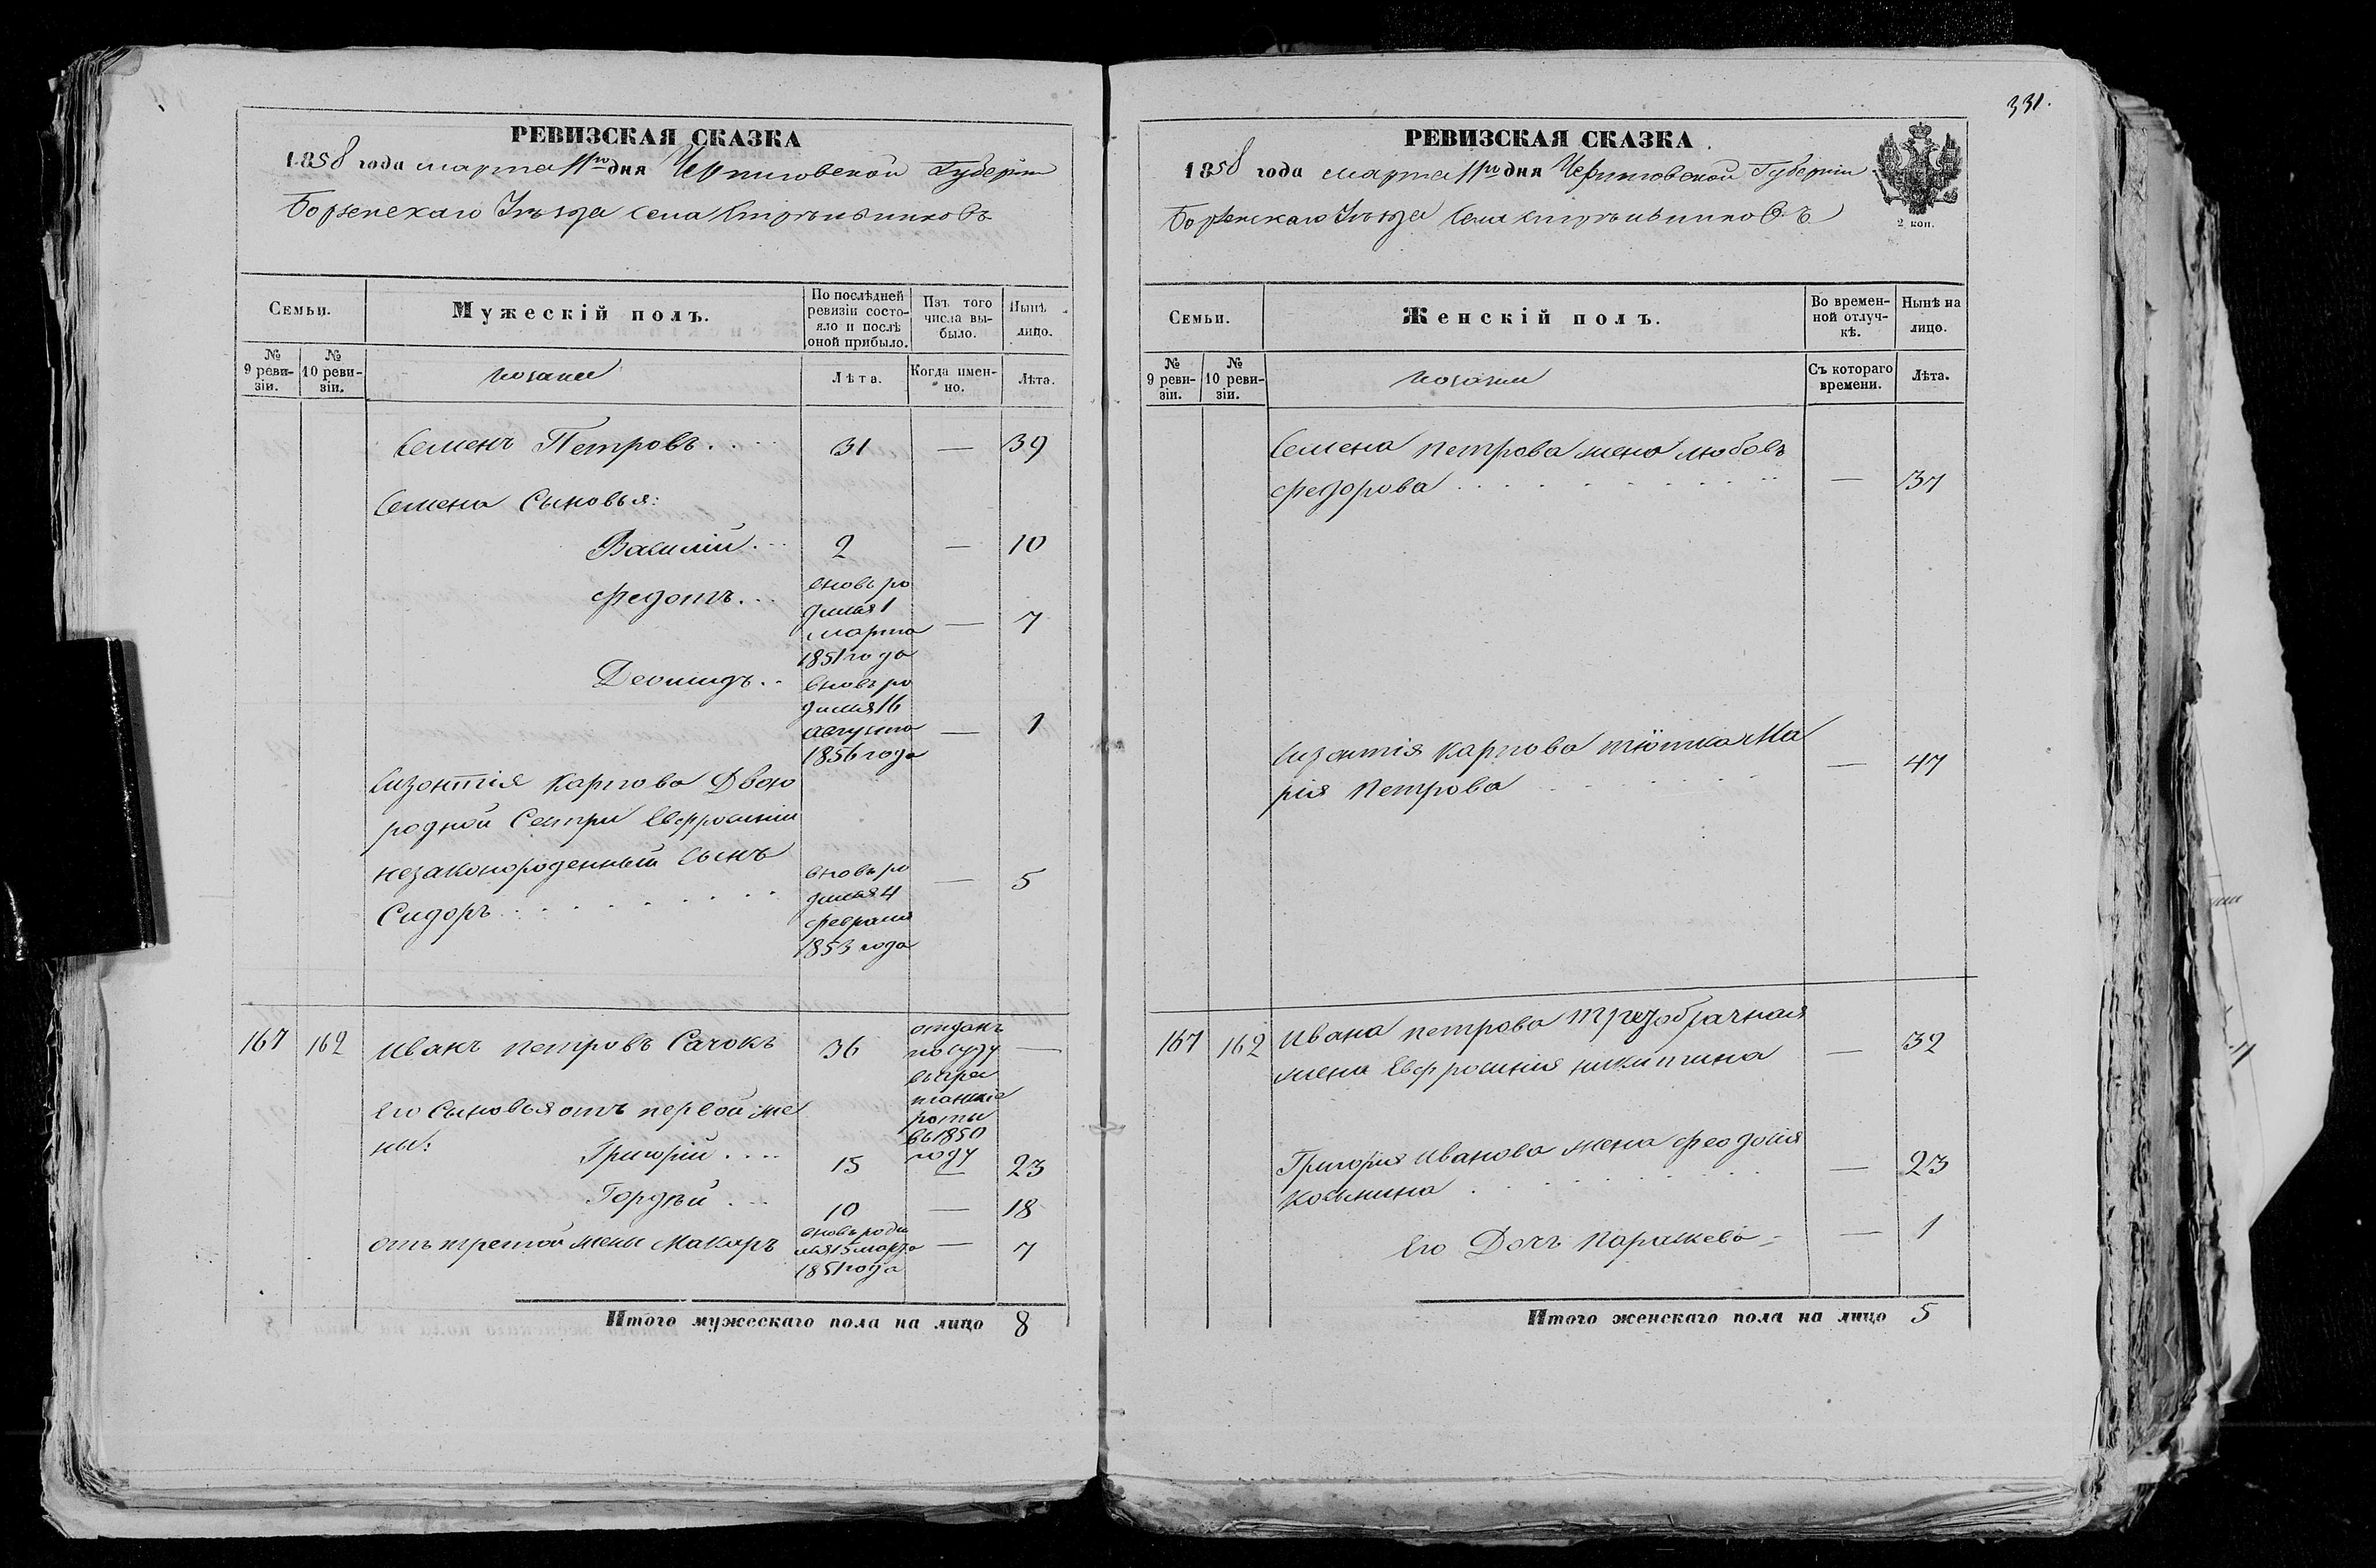 РЕВИЗСКАЯ СКАЗКА
1858 года марта 11го дня Черниговской Губерніи
Борзенскаго Уѣзда Села
Семьи.
Мужескій полъ.
По послѣдней ревизіи состояло и послѣ оной прибыло.
Изъ того числа выбыло.
Нынѣ лицо.
№ 9 ревизіи.
№ 10 ревизіи.
козаки
Лѣта.
Когда именно.
Лѣта.
Семенъ Петровъ . . . 31 — 39
Семена Сыновья:
Василій . . 2 — 10
Федотъ . . . вновь ро
дился 1
марта — 7
1851 года
Леонидъ . . вновь ро
дился 16
августа — 1
1856 года
Карпова Двою
родной Сестри Евфросиніи
незаконороденный Сынъ вновь ро — 5
Сидоръ . . . . . . . дился 4
февраля
1853 года
167 162 Иванъ Петровъ Сачокъ 36 отданъ —
по суду
въ арес
танскіе
Его Сыновья отъ первой же роты
ны: въ 1850
Григорій . . . . 15 году — 23
Гордѣй . . . 10 — 18
отъ третой жены Макаръ вновь роди
лся 15 марта — 7
1851 года
Итого мужескаго пола на лицо 8
331.
РЕВИЗСКАЯ СКАЗКА.
1858 года марта 11го дня Черниговской Губерніи
Борзенскаго Уѣзда Села
2 коп.
Семьи.
Женскій полъ.
Во временной отлучкѣ.
Нынѣ на лицо.
№ 9 ревизіи.
№ 10 ревизіи.
козаки
Съ котораго времени.
Лѣта.
Семена Петрова жена Любовь
Федорова . . . . . . . . . — 37
Карпова тіотка Ма
рія Петрова . . . . . — 47
167 162 Ивана Петрова Трезобрачная
жена Евфросинія Никитина — 32
Григорія Иванова жена Феодосія
Косьмина . . . . . . . — 23
Его Дочь Параскева — 1
Итого женскаго пола на лицо 5